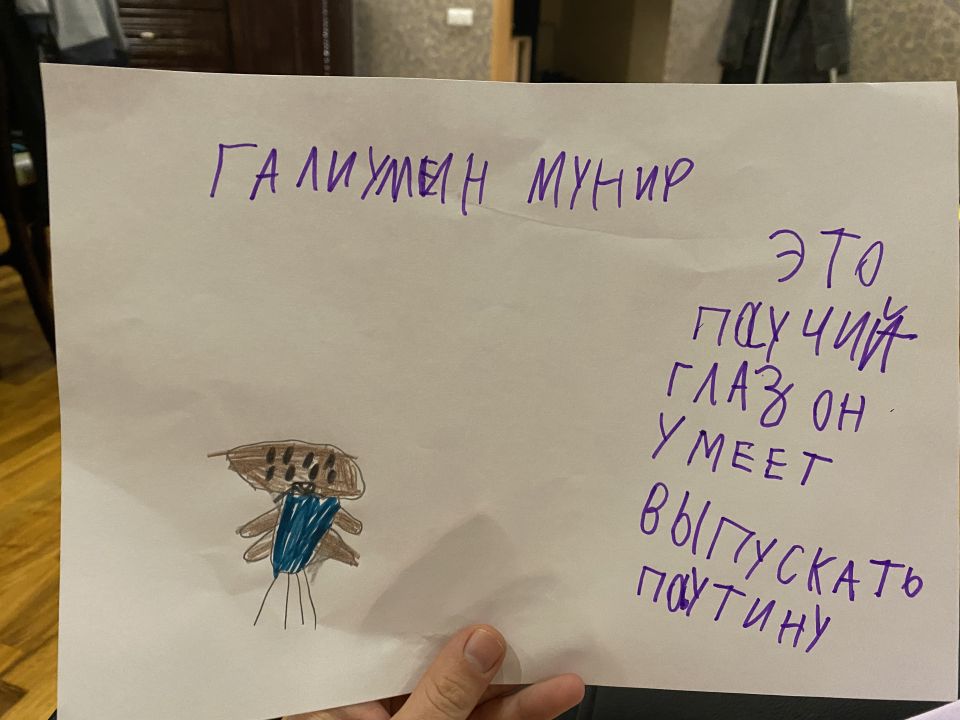 ГАЛИУМЕИН МУНИР
ЭТО
ПАУЧИЙ
ГЛАЗ ОН
УМЕЕТ
ВЫПУСКАТЬ
ПАУТИНУ